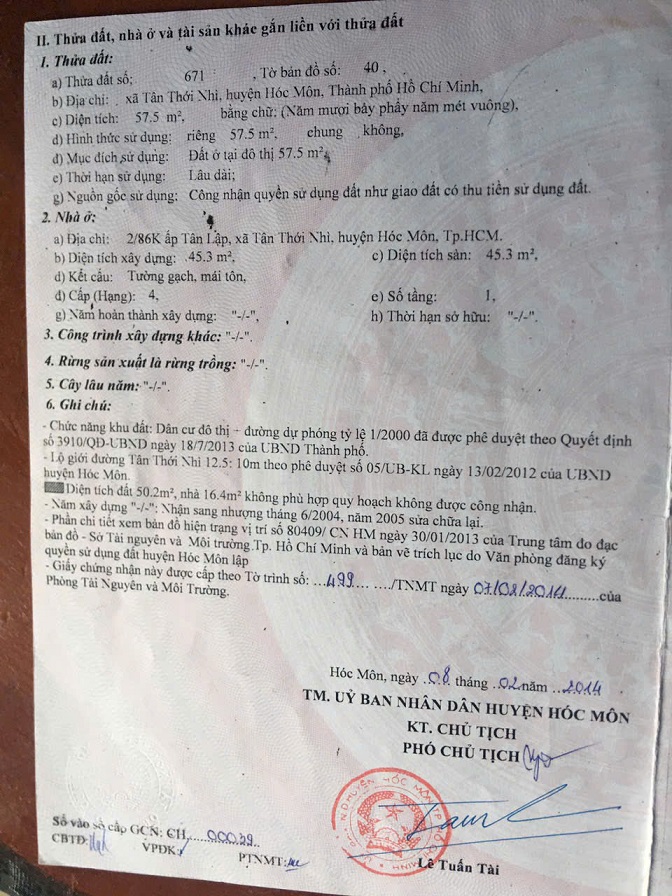 II. Thửa đất, nhà ở và tài sản khác gắn liền với thửa đất
1. Thửa đất:
a) Thửa đất số: 671 , Tờ bản đồ số: 40 ,
b) Địa chỉ: . xã Tân Thới Nhì, huyện Hóc Môn, Thành phố Hồ Chí Minh,
c) Diện tích: 57.5 m², bằng chữ: (Năm mươi bảy phẩy năm mét vuông),
d) Hình thức sử dụng: riêng 57.5 m², chung không,
đ) Mục đích sử dụng: Đất ở tại đô thị 57.5 m²,
e) Thời hạn sử dụng: Lâu dài;
g) Nguồn gốc sử dụng: Công nhận quyền sử dụng đất như giao đất có thu tiền sử dụng đất.
2. Nhà ở:
a) Địa chỉ: 2/86K ấp Tân Lập, xã Tân Thới Nhì, huyện Hóc Môn, Tp.HCM.
b) Diện tích xây dựng: 45.3 m², c) Diện tích sàn: 45.3 m²,
d) Kết cấu: Tường gạch, mái tôn,
đ) Cấp (Hạng): 4, e) Số tầng: 1,
g) Năm hoàn thành xây dựng: "-/-", h) Thời hạn sở hữu: "-/-".
3. Công trình xây dựng khác: "-/-".
4. Rừng sản xuất là rừng trồng: "-/-".
5. Cây lâu năm: "-/-".
6. Ghi chú:
- Chức năng khu đất: Dân cư đô thị + đường dự phóng tỷ lệ 1/2000 đã được phê duyệt theo Quyết định
số 3910/QĐ-UBND ngày 18/7/2013 của UBND Thành phố.
- Lộ giới đường Tân Thới Nhì 12.5: 10m theo phê duyệt số 05/UB-KL ngày 13/02/2012 của UBND
huyện Hóc Môn.
Diện tích đất 50.2m², nhà 16.4m² không phù hợp quy hoạch không được công nhận.
- Năm xây dựng "-/-": Nhận sang nhượng tháng 6/2004, năm 2005 sửa chữa lại.
- Phần chi tiết xem bản đồ hiện trạng vị trí số 80409/ CN HM ngày 30/01/2013 của Trung tâm đo đạc
bản đồ - Sở Tài nguyên và Môi trường Tp. Hồ Chí Minh và bản vẽ trích lục do Văn phòng đăng ký
quyền sử dụng đất huyện Hóc Môn lập
- Giấy chứng nhận này được cấp theo Tờ trình số: ...499... ..../TNMT ngày 07/02/2014.........của
Phòng Tài Nguyên và Môi Trường.
Hóc Môn, ngày .08 tháng .02 năm ..2014
TM. UỶ BAN NHÂN DÂN HUYỆN HÓC MÔN
KT. CHỦ TỊCH
PHÓ CHỦ TỊCH
Số vào sổ cấp GCN: CH,......00039..
CBTĐ: VPĐK: PTNMT:
Lê Tuấn Tài